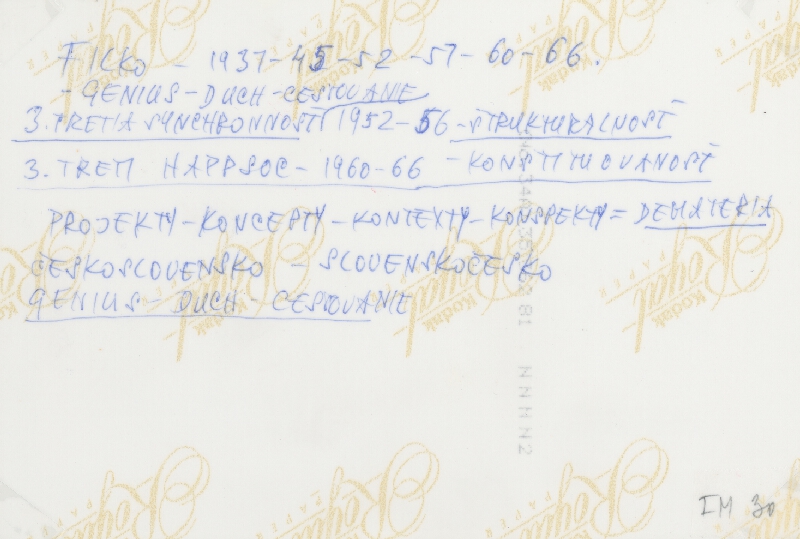 FILKO - 1937-45-52-57-60-66.
- GENIUS-DUCH-CESTOVANIE
3. TRETIA SYNCHRONNOSŤ 1952-56-ŠTRUKTURALNOSŤ
3. TRETÍ HAPPSOC - 1960-66 - KONŠTITUOVANOSŤ
PROJEKTY-KONCEPTY-KONTEXTY-KONSPEKTY= DEMATERIA
ČESKOSLOVENSKO - SLOVENSKOČESKO
GENIUS - DUCH - CESTOVANIE
IM 30
Kodak Royal PAPER